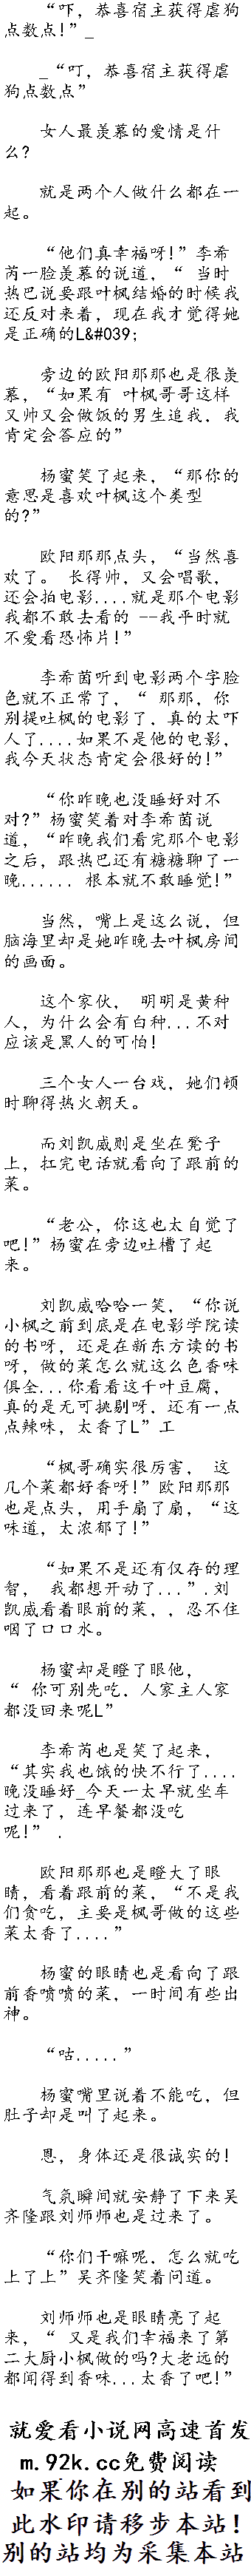 “吓，恭喜宿主获得虐狗
点数点!”_
_“叮，恭喜宿主获得虐
狗点数点”
女人最羡慕的爱情是什
么?
就是两个人做什么都在一
起。
“他们真幸福呀!”李希
芮一脸羡慕的说道，“ 当时
热巴说要跟叶枫结婚的时候我
还反对来着，现在我才觉得她
是正确的L&#039;
旁边的欧阳那那也是很羡
慕，“如果有 叶枫哥哥这样
又帅又会做饭的男生追我，我
肯定会答应的”
杨蜜笑了起来，“那你的
意思是喜欢叶枫这个类型
的?”
欧阳那那点头，“当然喜
欢了。 长得帅，又会唱歌，
还会拍电影....就是那个电影
我都不敢去看的 --我平时就
不爱看恐怖片!”
李希茵听到电影两个字脸
色就不正常了，“ 那那，你
别提吐枫的电影了，真的太吓
人了....如果不是他的电影，
我今天状态肯定会很好的!”
“你昨晚也没睡好对不
对?”杨蜜笑着对李希茵说
道，“昨晚我们看完那个电影
之后，跟热巴还有糖糖聊了一
晚...... 根本就不敢睡觉!”
当然，嘴上是这么说，但
脑海里却是她昨晚去叶枫房间
的画面。
这个家伙， 明明是黄种
人，为什么会有白种...不对
应该是黑人的可怕!
三个女人一台戏，她们顿
时聊得热火朝天。
而刘凯威则是坐在凳子
上，扛完电话就看向了跟前的
菜。
“老公，你这也太自觉了
吧!”杨蜜在旁边吐槽了起
来。
刘凯威哈哈一笑，“你说
小枫之前到底是在电影学院读
的书呀，还是在新东方读的书
呀，做的菜怎么就这么色香味
俱全...你看看这千叶豆腐，
真的是无可挑剔呀，还有一点
点辣味，太香了L”工
“枫哥确实很厉害， 这
几个菜都好香呀!”欧阳那那
也是点头，用手扇了扇，“这
味道，太浓郁了!”
“如果不是还有仅存的理
智， 我都想开动了...”.刘
凯威看着眼前的菜，，忍不住
咽了口口水。
杨蜜却是瞪了眼他，
“ 你可别先吃，人家主人家
都没回来呢L”
李希芮也是笑了起来，
“其实我也饿的快不行了....
晚没睡好_今天一太早就坐车
过来了，连早餐都没吃
呢!”．
欧阳那那也是瞪大了眼
睛，看着跟前的菜，“不是我
们贪吃，主要是枫哥做的这些
菜太香了....”
杨蜜的眼睛也是看向了跟
前香喷喷的菜，一时间有些出
神。
“咕.....”
杨蜜嘴里说着不能吃，但
肚子却是叫了起来。
恩，身体还是很诚实的!
气氛瞬间就安静了下来吴
齐隆跟刘师师也是过来了。
“你们干嘛呢，怎么就吃
上了上”吴齐隆笑着问道。
刘师师也是眼睛亮了起
来，“ 又是我们幸福来了第
二大厨小枫做的吗?大老远的
都闻得到香味...太香了吧!”
就爱看小说网高速首发
m.92k.cc免费阅读
如果你在别的站看到
此水印请移步本站!
别的站均为采集本站